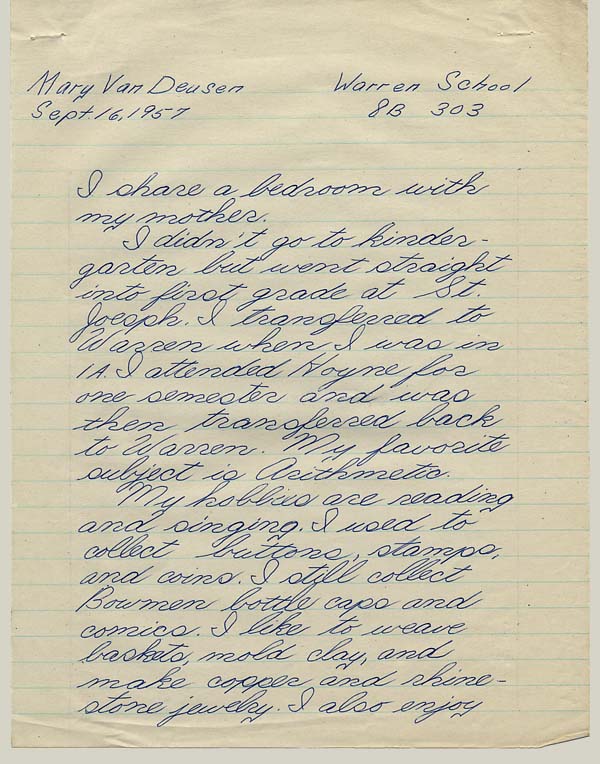 Mary Van Deusen Warren School
Sept. 16, 1957 8B 303
I share a bedroom with
my mother.
I didn't go to kinder-
garten but went straight
into first grade at St.
Joesph. I transferred to
Warren when I was in
1A. I attended Hoyne for
one semester and was
then transferred back
to Warren. My favorite
subject is Arithmetic.
My hobbies are reading
and singing. I used to
collect buttons, stamps,
and coins. I still collect
Bowmen bottle caps and
comics. I like to weave
baskets, mold clay, and
make copper and rhine-
stone jewelry. I also enjoy